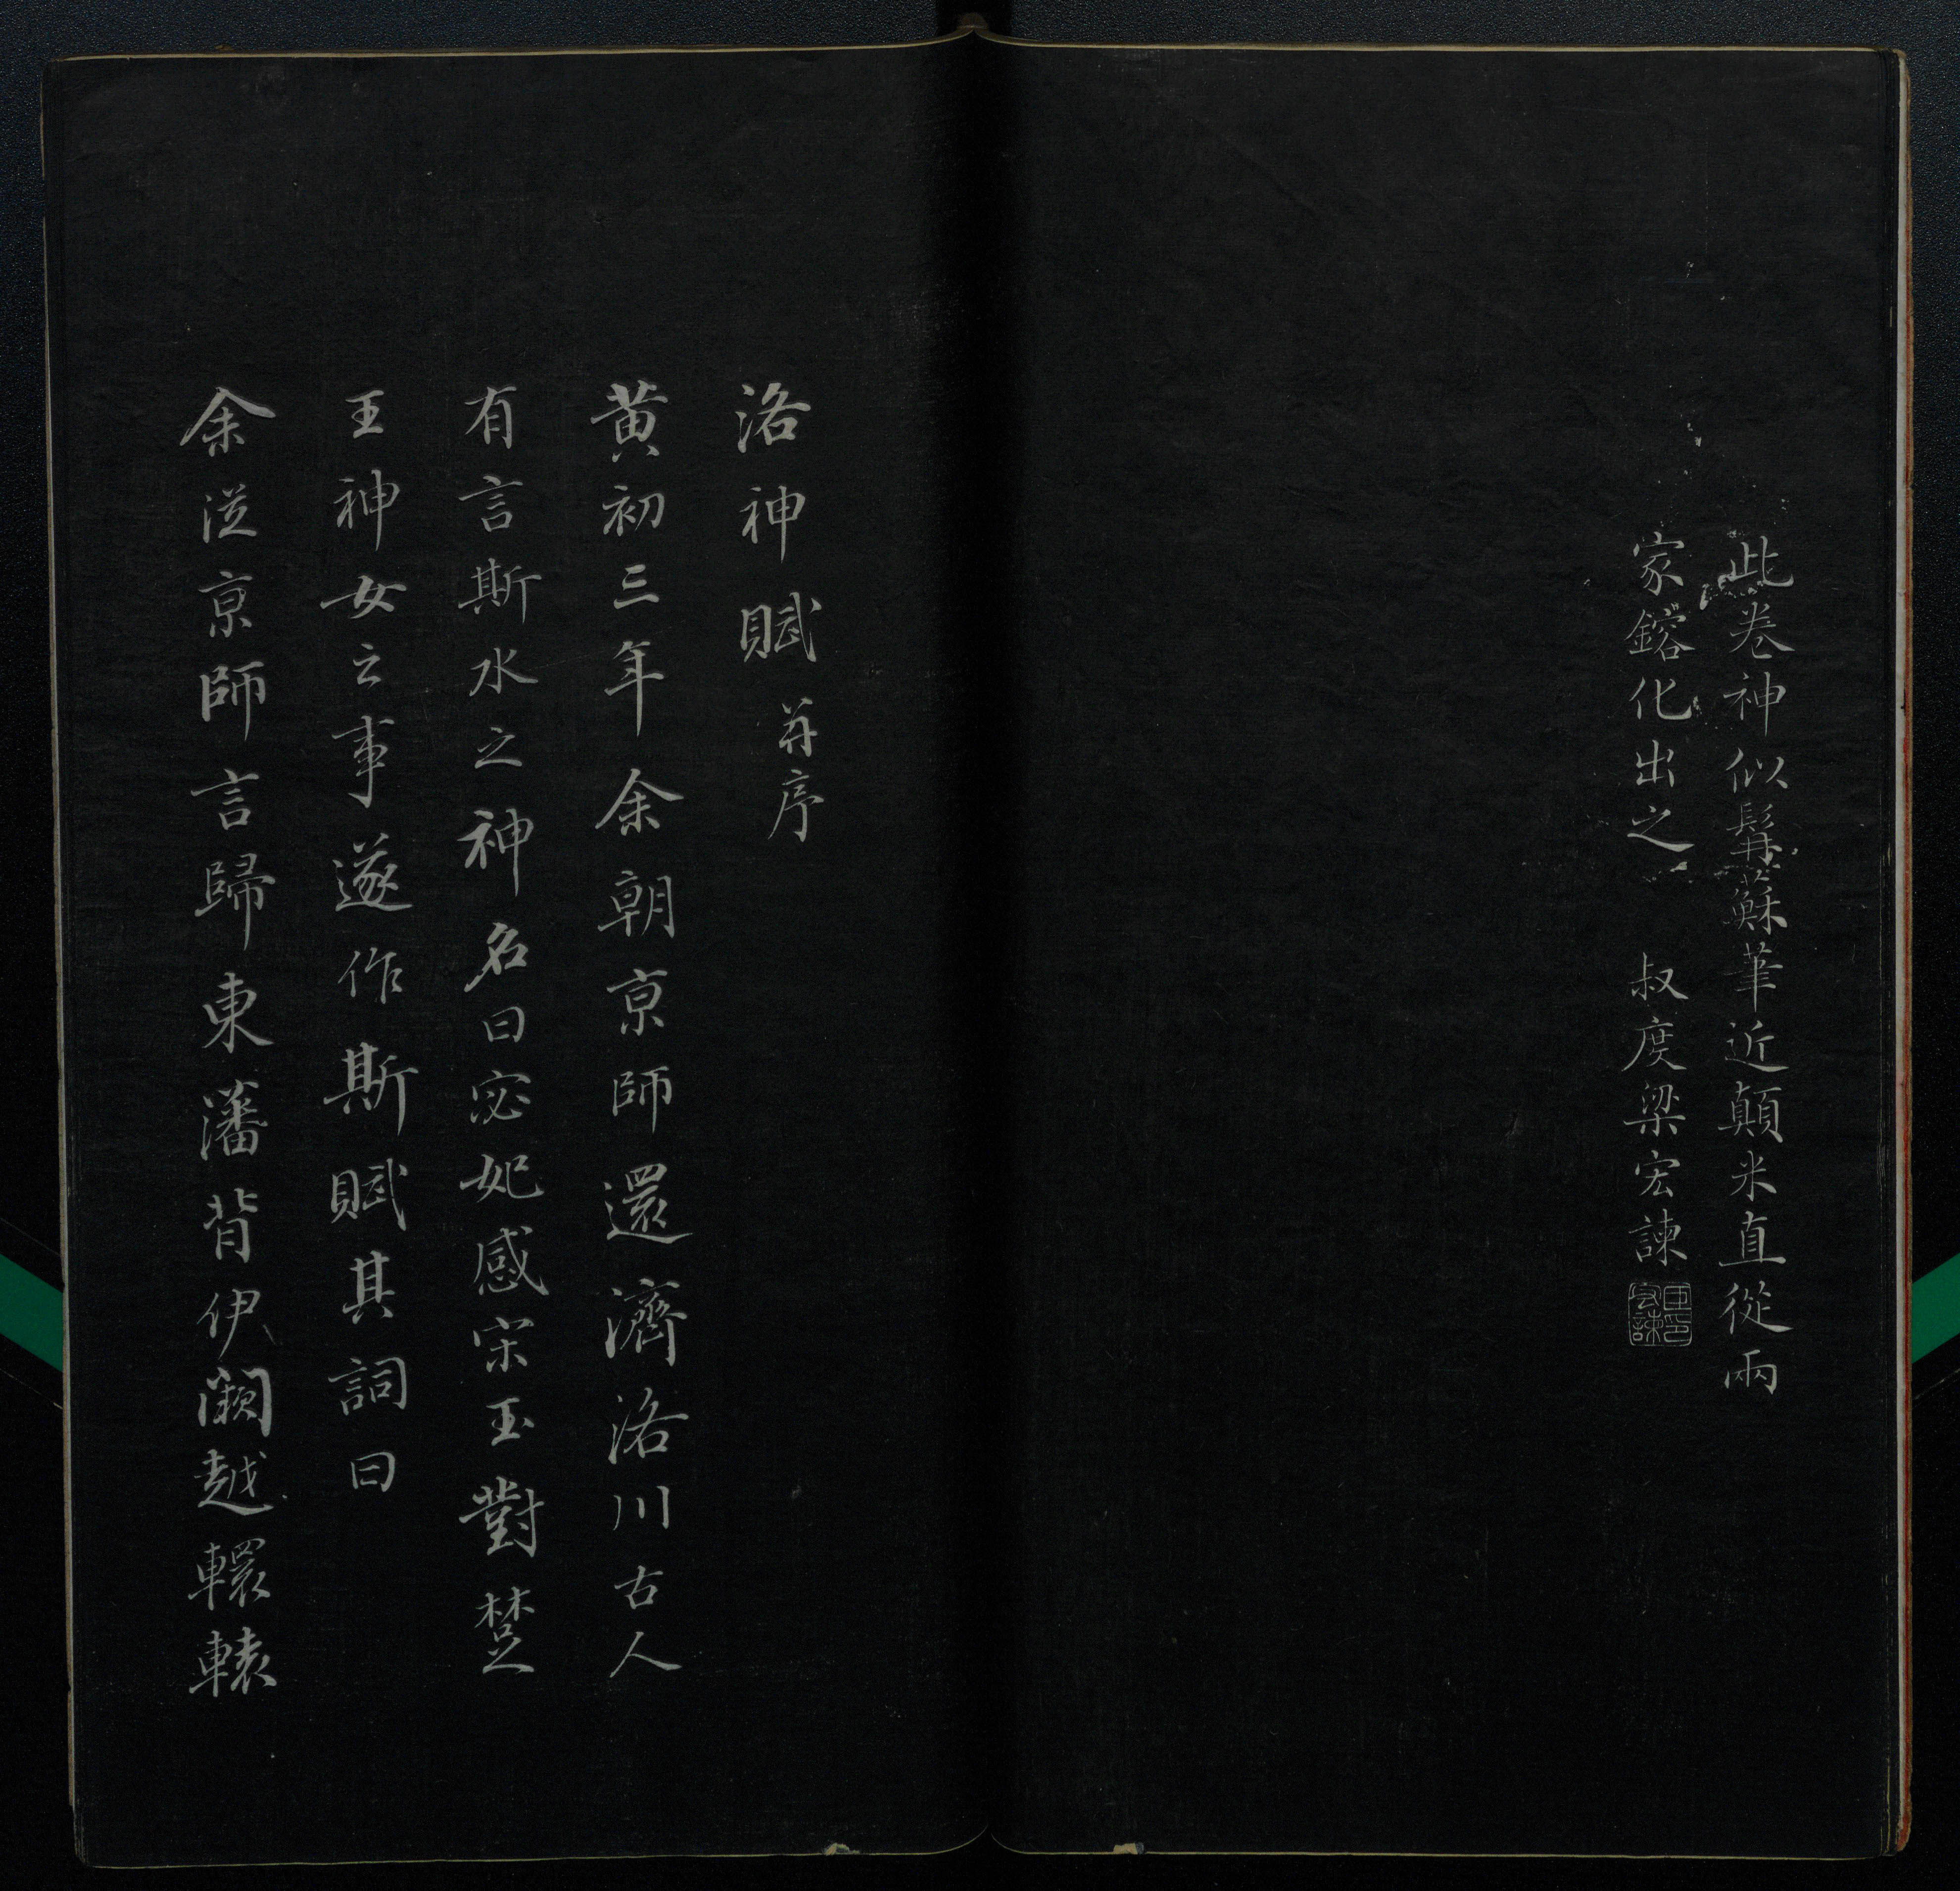 此卷神似髯蘇筆近顛米直從兩
家鎔化出之 叔度梁宏諫
洛神賦 并序
黄初三年余朝京師還濟洛川古人
有言斯水之神名曰宓妃感宋玉對楚
王神女之事遂作斯賦其詞曰
余從京師言歸東藩背伊闕越轘轅